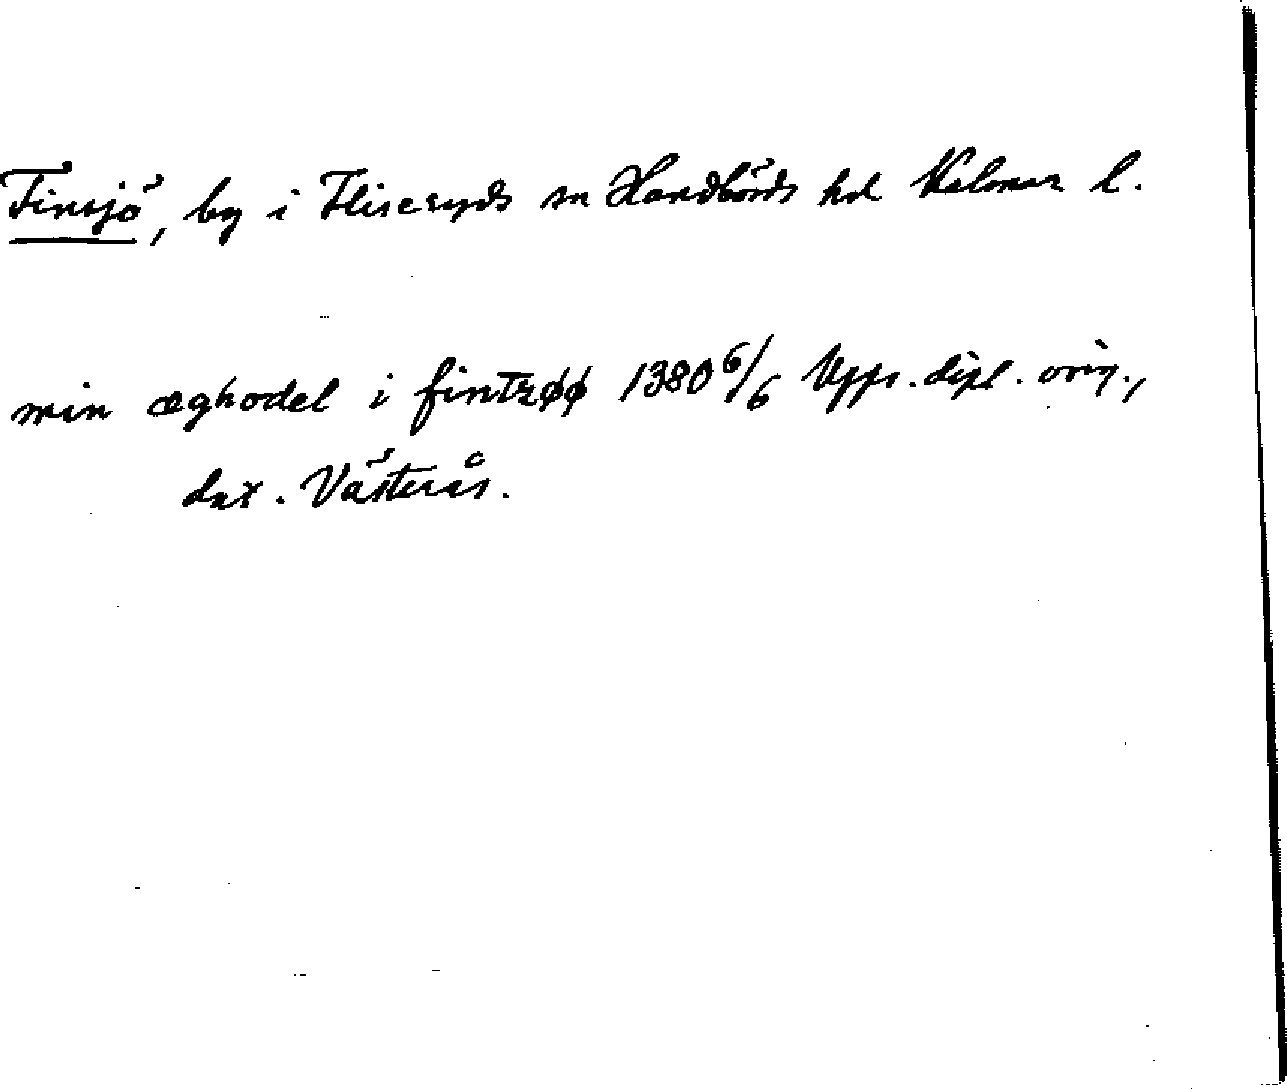 Finsjö, by i Fliseryds sn Handbörds hd Kalmar l.
min æghodel i fintzøø 1380 6/6 Upps. dipl. orig.,
dat. Västerås.